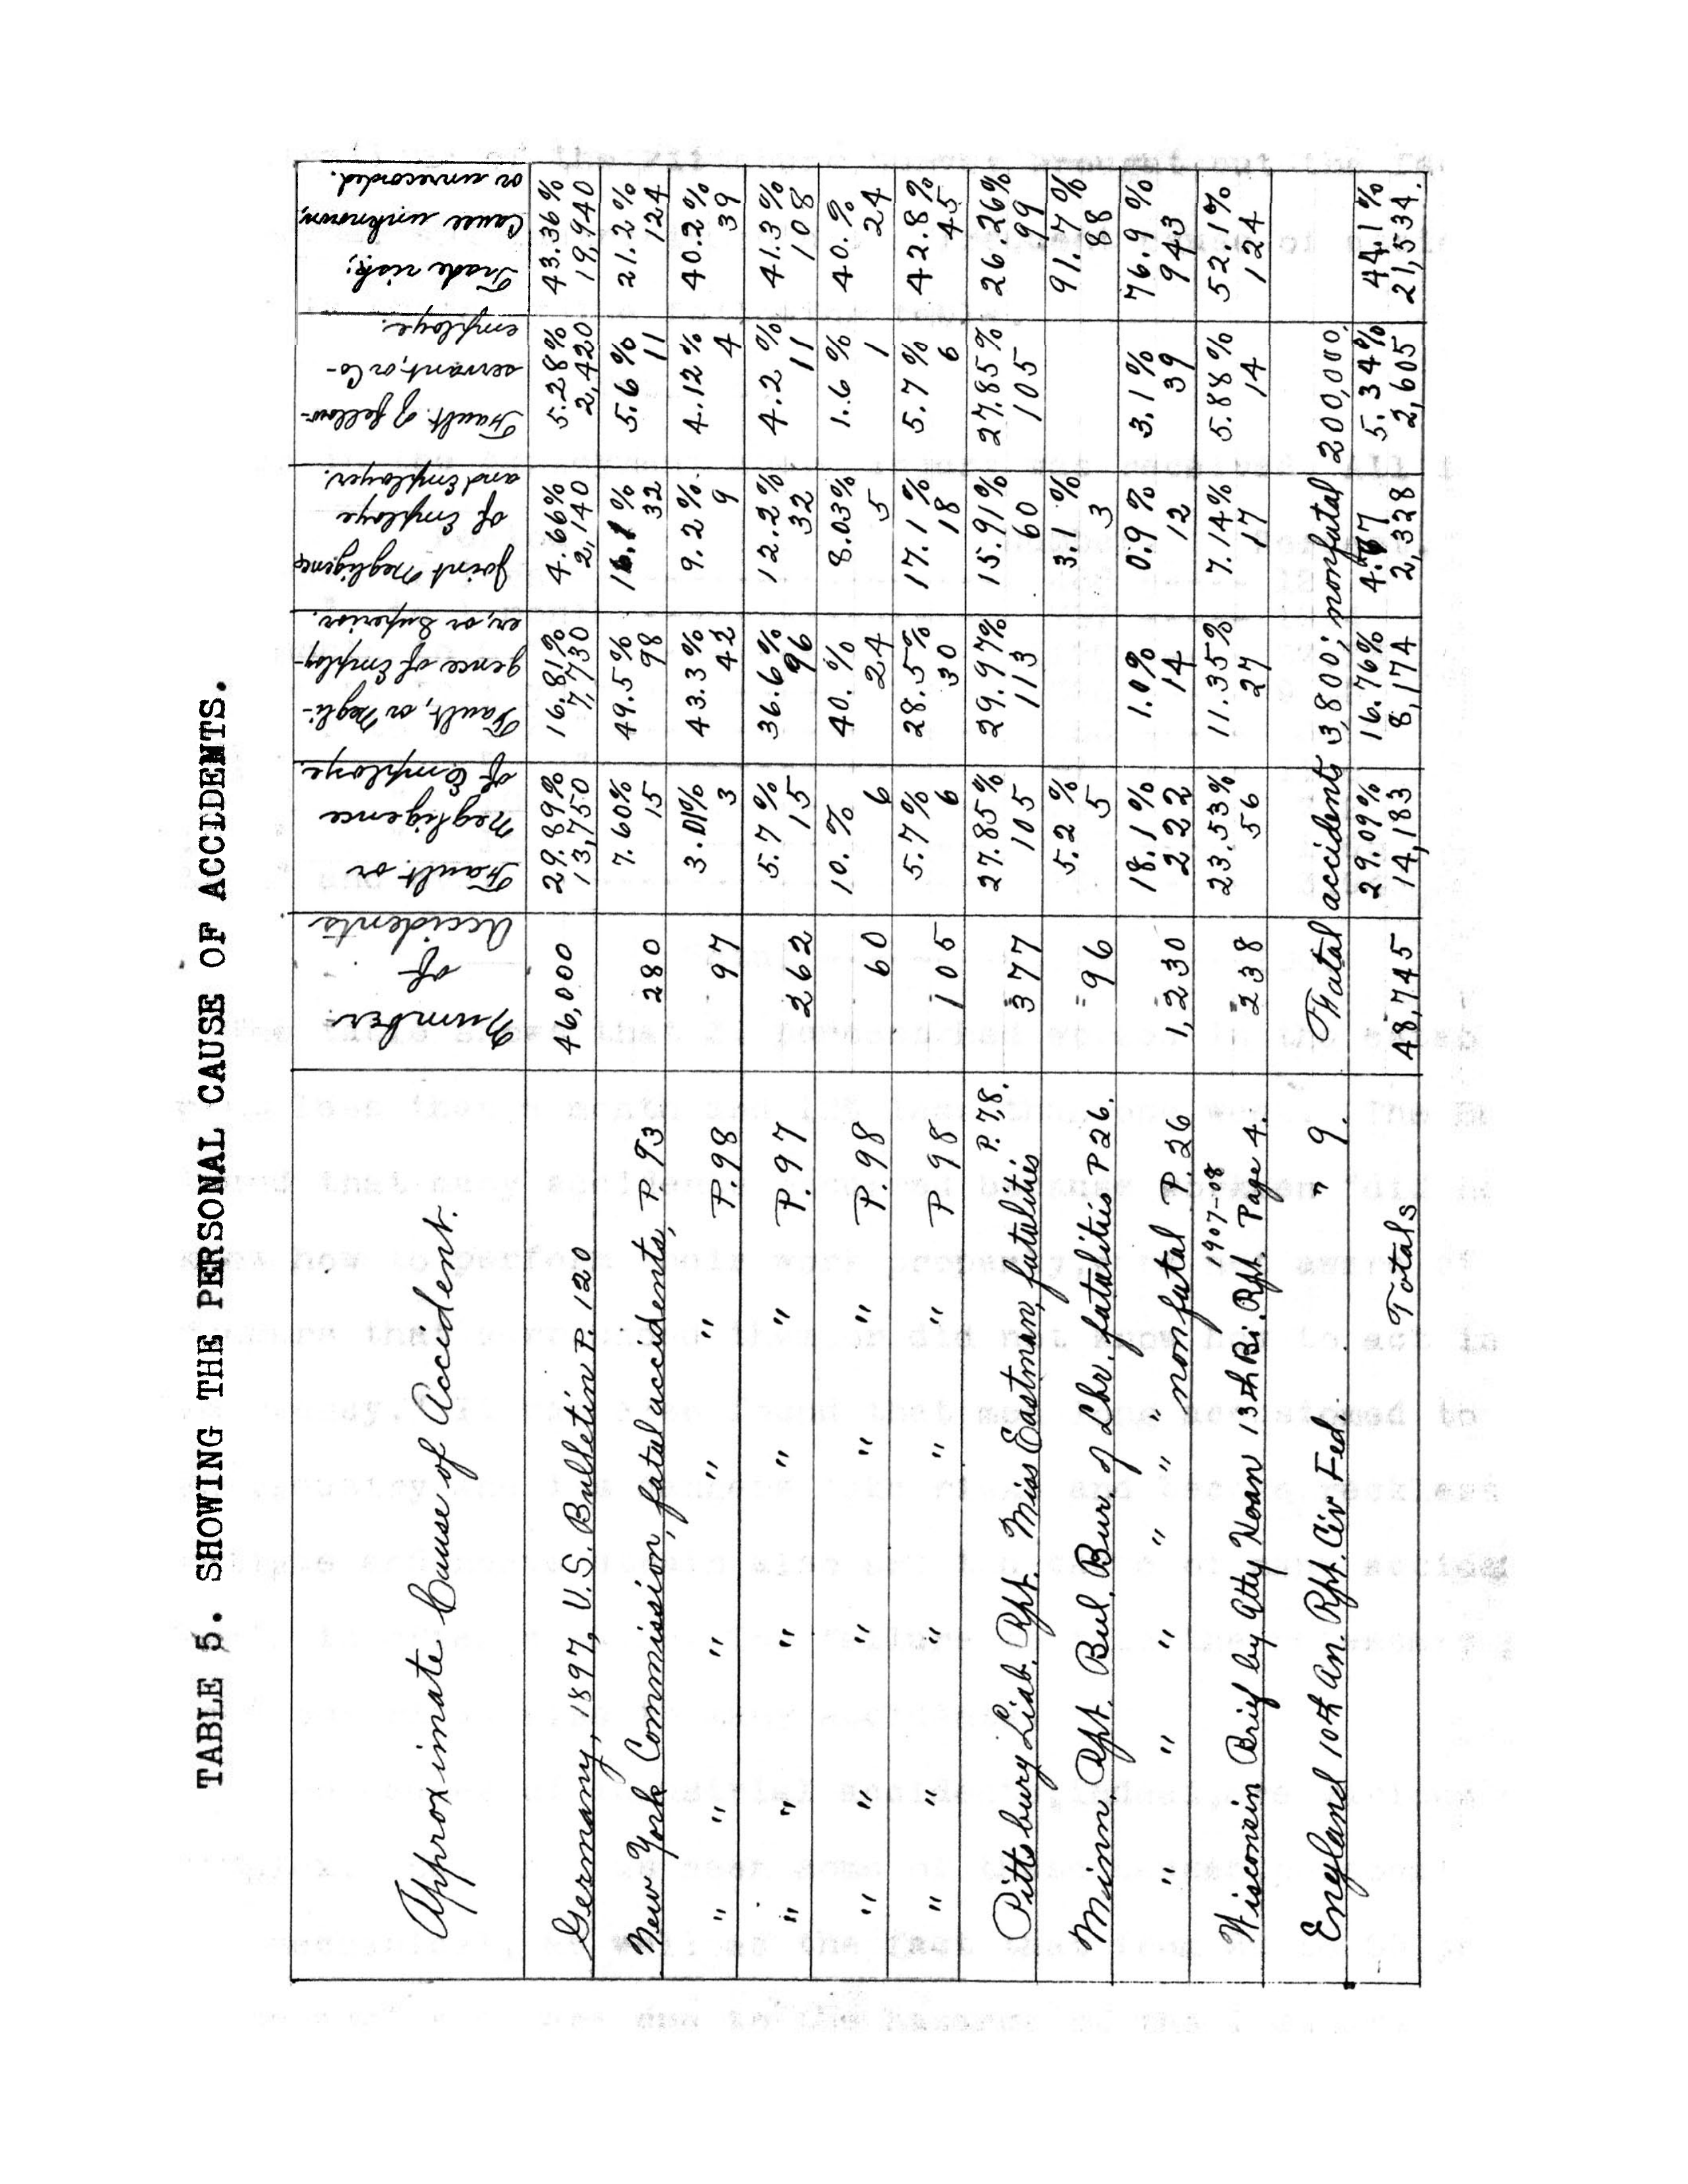 TABLE 5. SHOWING THE PERSONAL CAUSE OF ACCIDENTS.
Approximate Cause of Accident.
Number
of
Accidents
Fault or
Negligence
of Employe.
Fault, or Negli-
gence of Employ-
er, or Superior.
Joint Negligence
of Employe
and Employer.
Fault of fellow-
servant, or Co-
employe.
Trade risk;
Cause unknown,
or unrecorded.
Germany, 1897, U.S. Bulletin P. 120 46,000 29.89% 16.81% 4.66% 5.28% 43.36%
13,750 7,730 2,140 2,420 19,940
New York Commission, fatal accidents, P. 93 280 7.60% 49.5% 16.1% 5.6% 21.2%
15 98 32 11 124
" " " " " P. 98 97 3.01% 43.3% 9.2% 4.12% 40.2%
3 42 9 4 39
" " " " " P. 97 262 5.7% 36.6% 12.2% 4.2% 41.3%
15 96 32 11 108
" " " " " P. 98 60 10.% 40.% 8.03% 1.6% 40.%
6 24 5 1 24
" " " " " P 98 105 5.7% 28.5% 17.1% 5.7% 42.8%
6 30 18 6 45
Pittsburg Liab. Rpt. Miss Eastman, fatalities P. 7,8. 377 27.85% 29.97% 15.91% 27.85% 26.26%
105 113 60 105 99
Minn. Rpt. Bul. Bur. of Lbr. fatalities P 26. 96 5.2% 3.1% 91.7%
5 3 88
" " " " " " nonfatal P. 26 1,230 18.1% 1.0% 0.9% 3.1% 76.9%
222 14 12 39 943
1907-08
Wisconsin Brief by Atty Hoan 13th Bi. Rpt. Page 4. 238 23.53% 11.35% 7.14% 5.88% 52.1%
56 27 17 14 124
England 10th An. Rpt. Civ. Fed. " 9. Fatal accidents 3,800; nonfatal 200,000.
Totals 48,745 29.09% 16.76% 5.34% 44.1%
14,183 8,174 2,328 2,605 21,534.